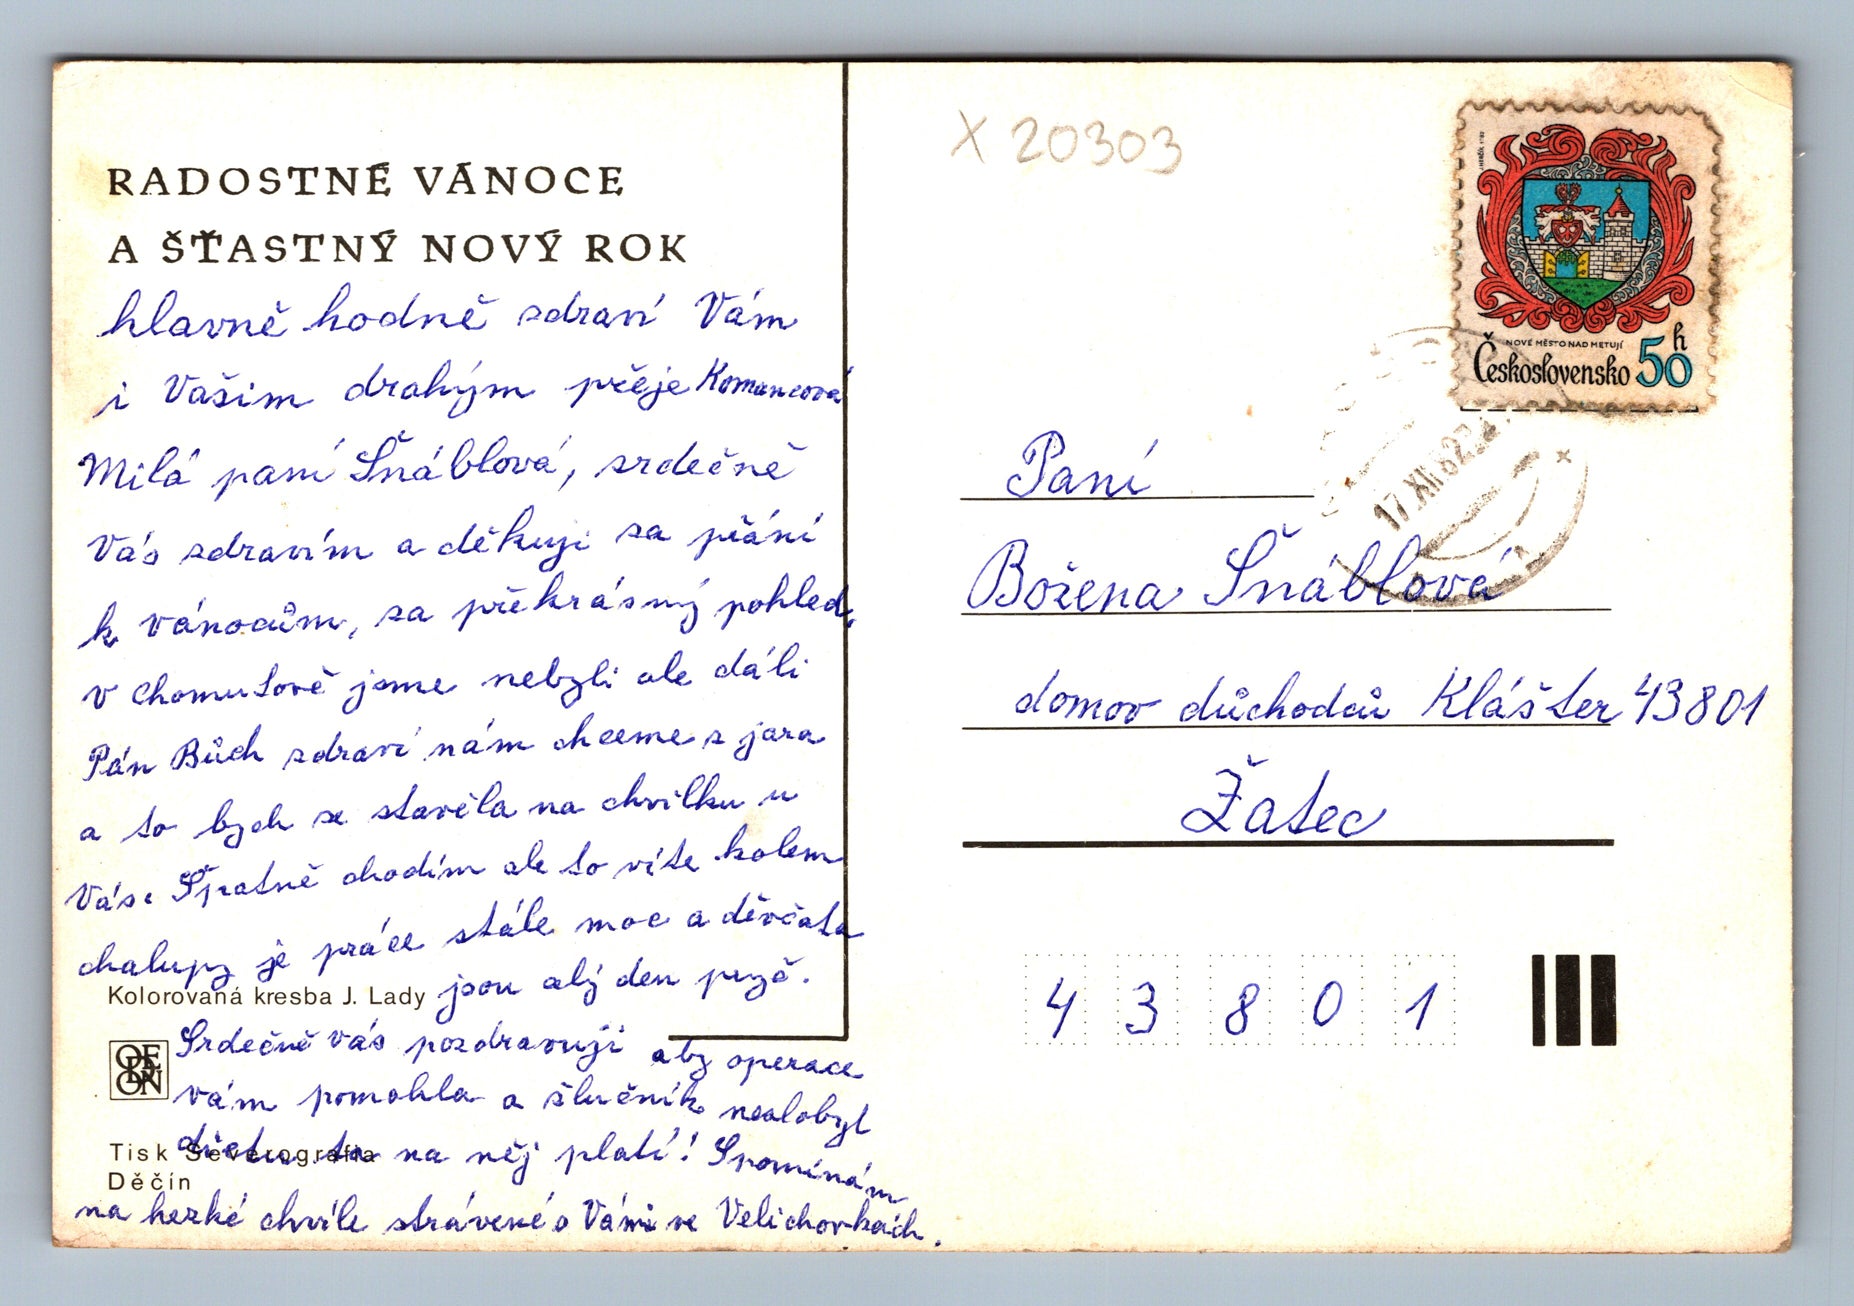 RADOSTNÉ VÁNOCE
A ŠŤASTNÝ NOVÝ ROK
hlavně hodně zdraví Vám
i Vašim drahým přeje Komancová
Milá paní Šnáblová, srdečně
Vás zdravím a děkuji za přání
k vánocům, za překrásný pohled.
v Chomutově jsme nebyli ale dá li
Pán Bůch zdraví nám chceme z jara
a to bych se stavěla na chvilku u
Vás. Špatně chodím ale to víte kolem
chalupy je práce stále moc a děvčata
jsou celý den pryč.
Kolorovaná kresba J. Lady
Srdečně vás pozdravuji aby operace
vám pomohla a žlučník nezlobyl
dietu to na něj platí! Spomínám
na hezké chvíle strávené s Vámi ve Velichovkách.
ODEON
Tisk Severografia
Děčín
X 20303
NOVÉ MĚSTO NAD METUJÍ
Československo 50 h
17.XII.82
Paní
Božena Šnáblová
domov důchodců Klášter 43801
Žatec
4 3 8 0 1